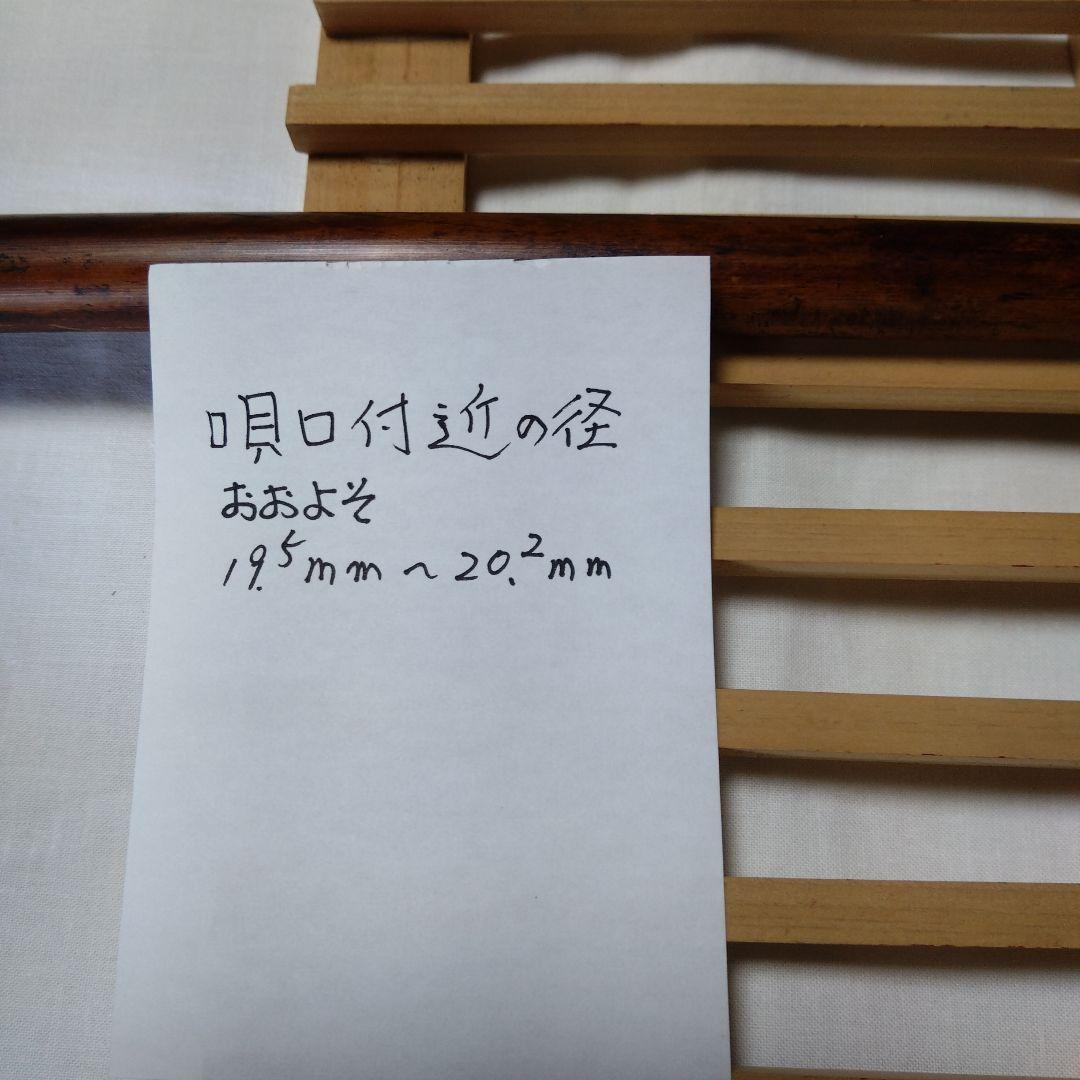 唄口付近の径
おおよそ
19.5mm〜20.2mm